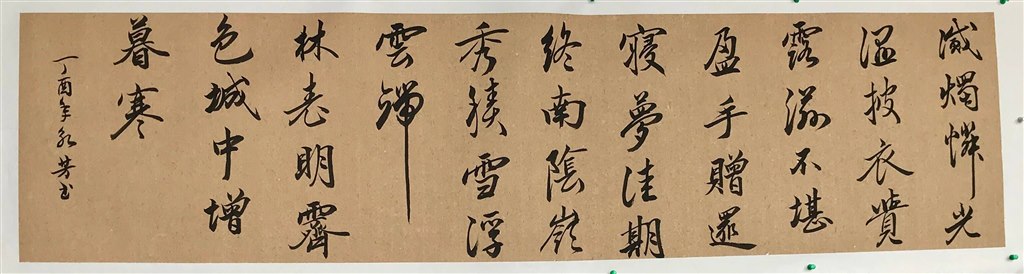 滅燭憐光
温披衣覺
露滋不堪
盈手贈還
寢夢佳期
終南陰嶺
秀積雪浮
雲端
林表明霽
色城中增
暮寒
丁酉年永芳书